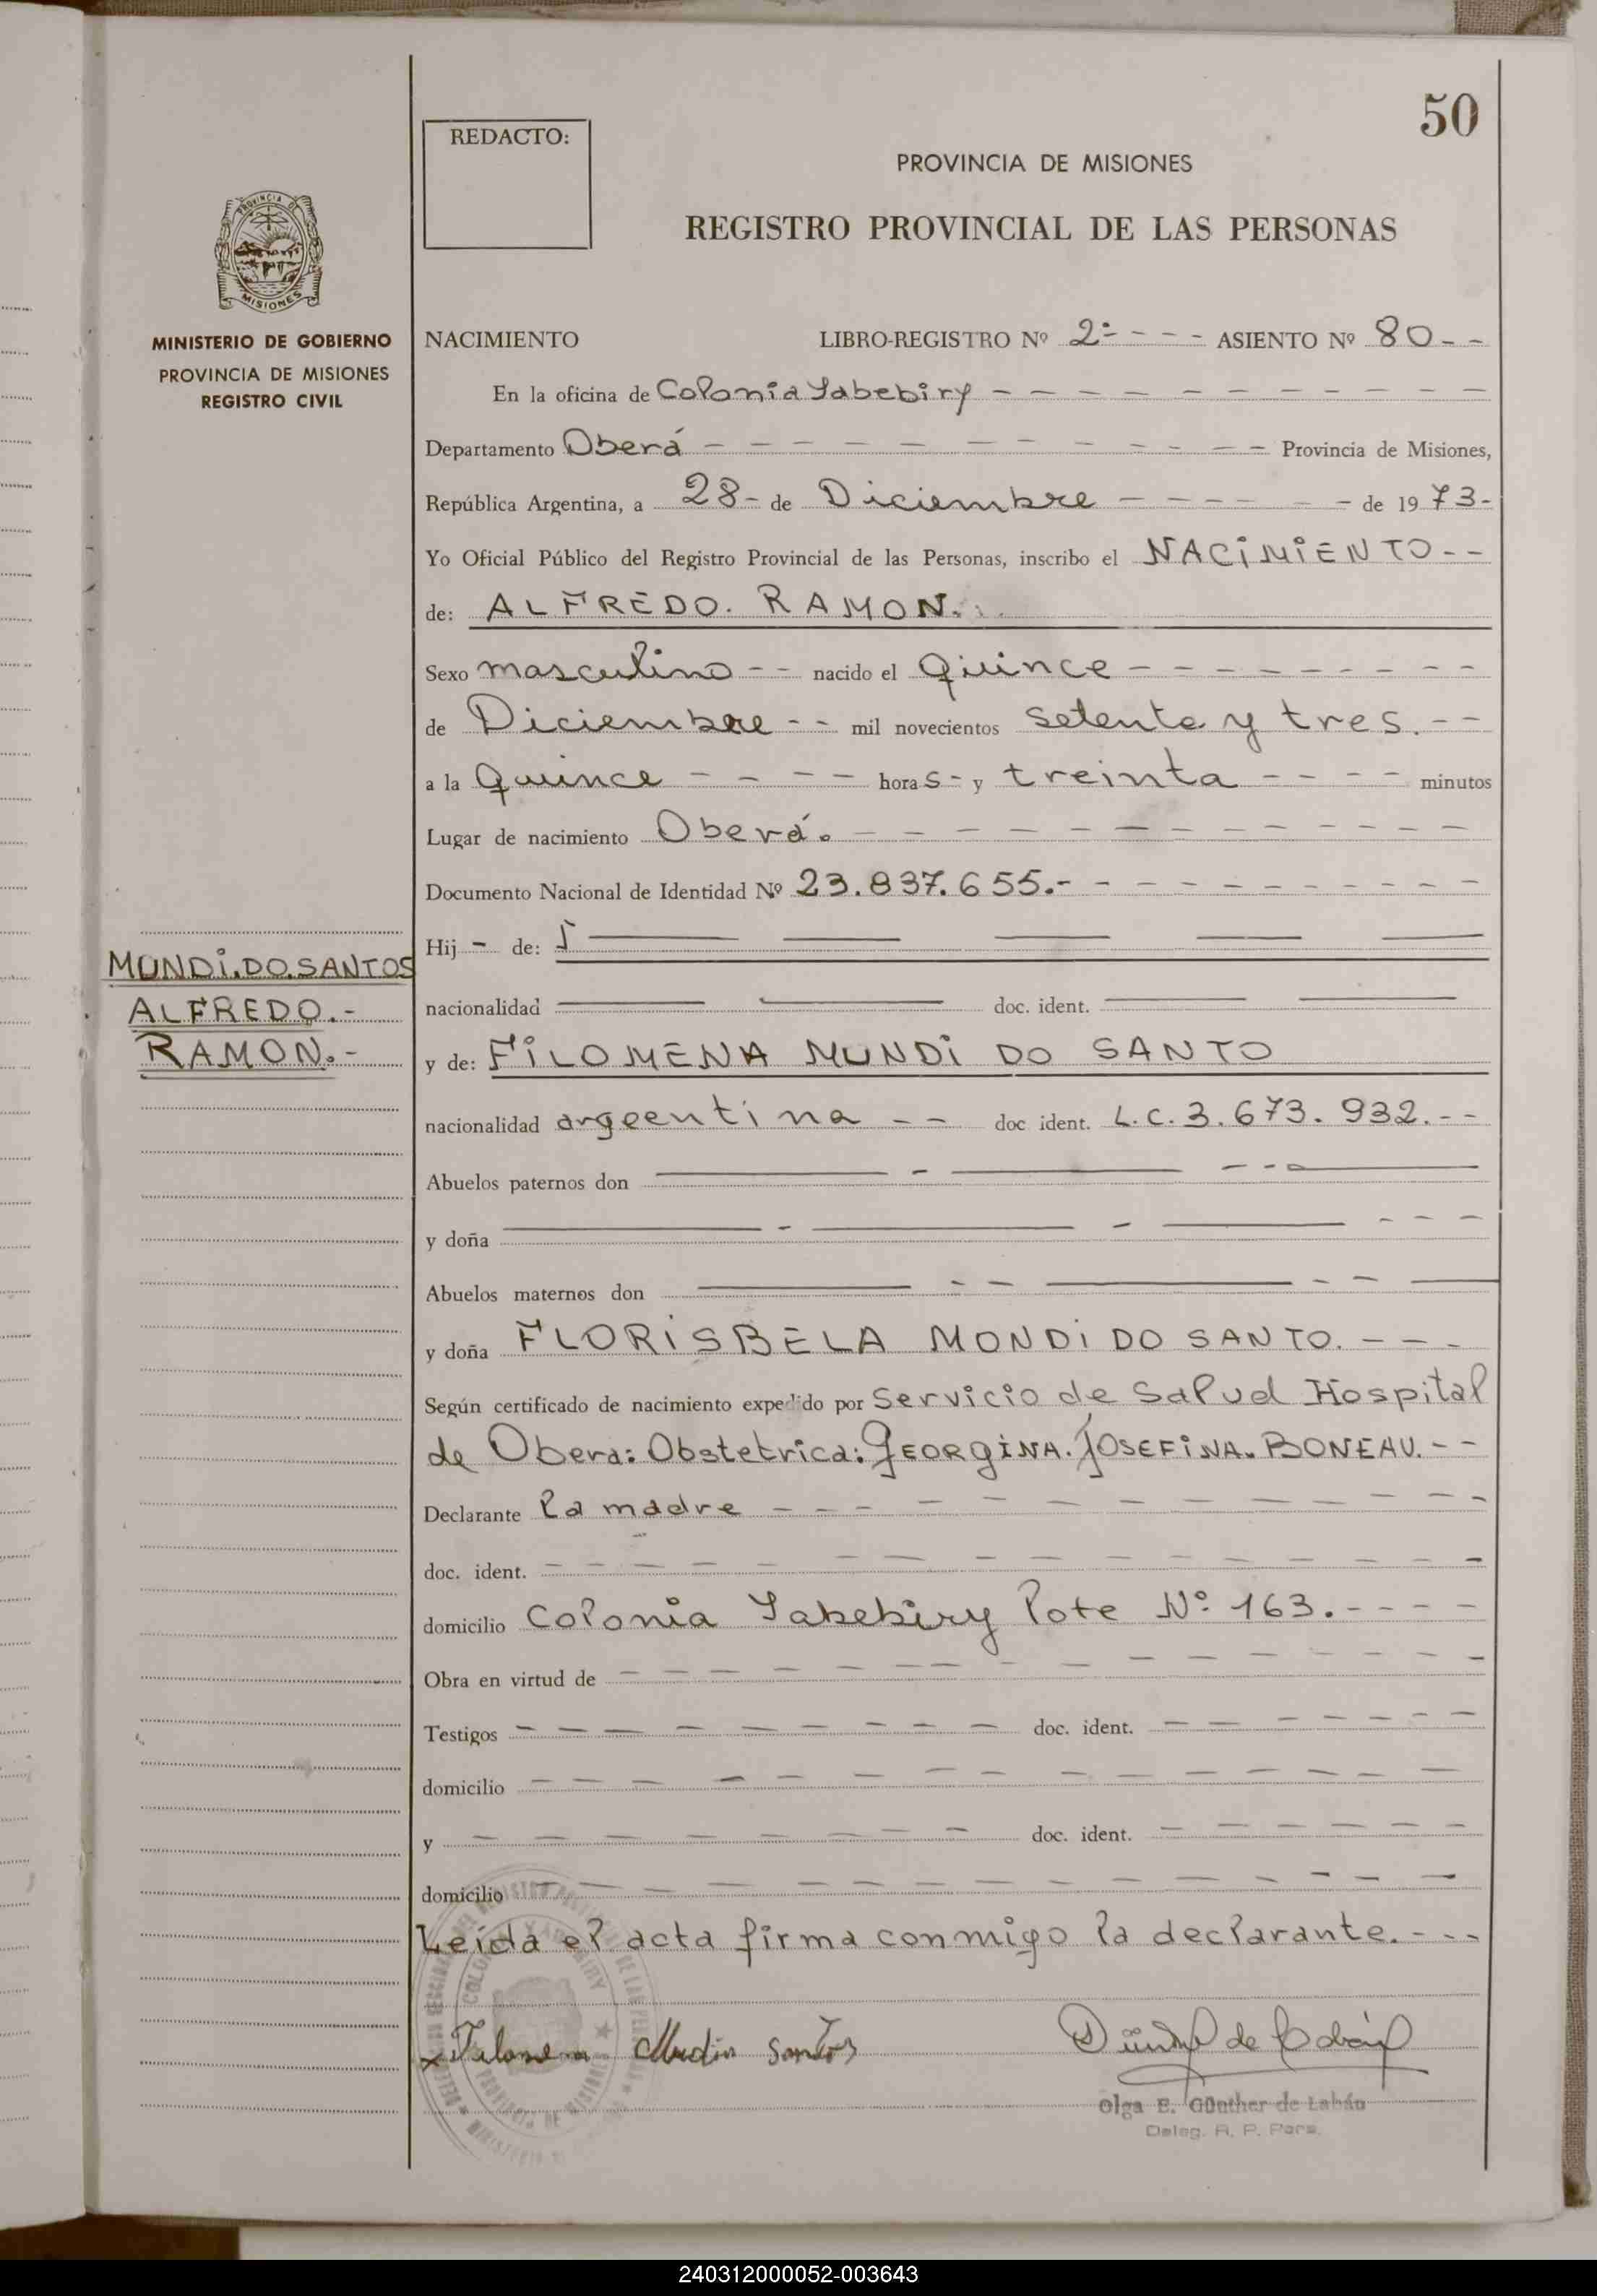 50
REDACTO:
PROVINCIA DE MISIONES
REGISTRO PROVINCIAL DE LAS PERSONAS
PROVINCIA DE
MISIONES
MINISTERIO DE GOBIERNO
PROVINCIA DE MISIONES
REGISTRO CIVIL
NACIMIENTO LIBRO-REGISTRO Nº 2º - - - - ASIENTO Nº 80 - -
En la oficina de Colonia Yabebiry - - - - - - - - - -
Departamento Oberá - - - - - - - - - - - Provincia de Misiones,
República Argentina, a 28 - de Diciembre - - - - - - de 19 73 -
Yo Oficial Público del Registro Provincial de las Personas, inscribo el NACiMiENTO - -
de: ALFREDO. RAMON.
Sexo masculino - - nacido el Quince - - - - - - - - -
de Diciembre - - mil novecientos setenta y tres. - -
a la Quince - - - - hora s - y treinta - - - - minutos
Lugar de nacimiento Oberá. - - - - - - - - - - - -
Documento Nacional de Identidad Nº 23.837.655. - - - - - - - - -
Hij - de:
MUNDi.DO.SANTOS
ALFREDO. -
RAMON. -
nacionalidad doc. ident.
y de: FiLOMENA MUNDi DO SANTO
nacionalidad argeentina - - doc ident. L.C. 3.673.932. - -
Abuelos paternos don
y doña
Abuelos maternos don
y doña FLORiSBELA MONDi DO SANTO. - - -
Según certificado de nacimiento expedido por Servicio de Salud Hospital
de Obera: Obstetrica: GEORGiNA. JOSEFiNA. BONEAU. - -
Declarante la madre - - - - - - - - - - - -
doc. ident. - - - - - - - - - - - - - -
domicilio Colonia Yabebiry lote Nº 163. - - - -
Obra en virtud de - - - - - - - - - - - - -
Testigos - - - - - - - - - doc. ident. - - - - - - -
domicilio - - - - - - - - - - - - - -
y - - - - - - - - doc. ident. - - - - - -
domicilio - - - - - - - - - - - - - -
Leida el acta firma conmigo la declarante. - - -
COLONIA YABEBIRY
PROVINCIA DE MISIONES
Olga E. Günther de Labán
Deleg. R. P. Pers.
240312000052-003643